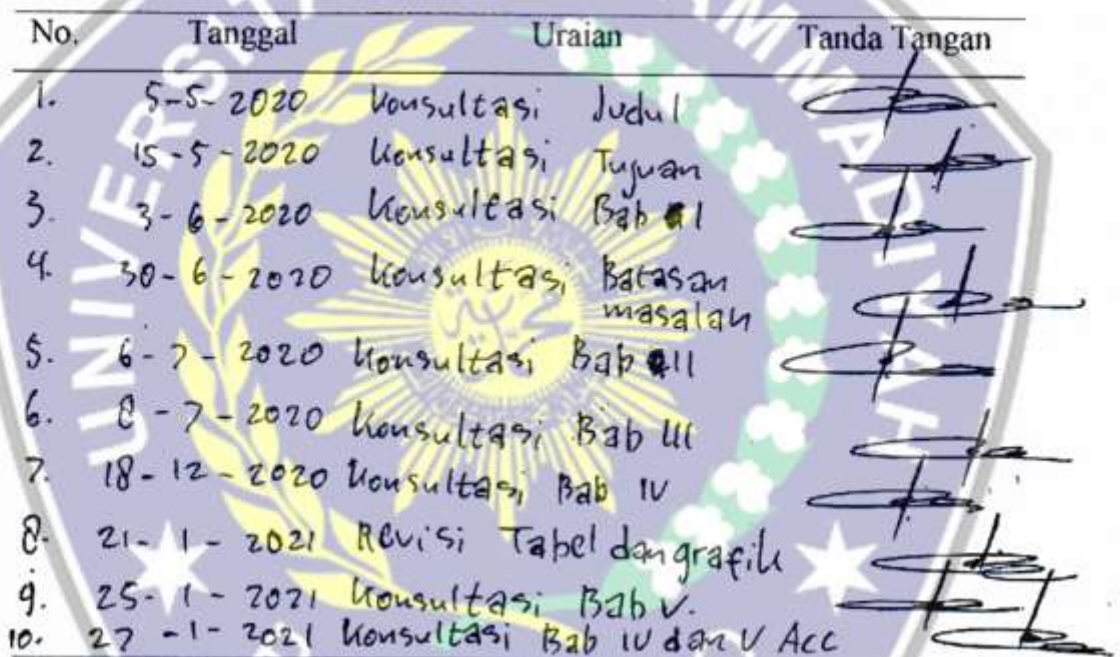 No. Tanggal Uraian Tanda Tangan
1. 5-5-2020 Konsultasi Judul
2. 15-5-2020 Konsultasi Tujuan
3. 3-6-2020 Konsultasi Bab I
4. 30-6-2020 Konsultasi Batasan
masalah
5. 6-7-2020 Konsultasi Bab II
6. 8-7-2020 Konsultasi Bab III
7. 18-12-2020 Konsultasi Bab IV
8. 21-1-2021 Revisi Tabel dan grafik
9. 25-1-2021 Konsultasi Bab V.
10. 27-1-2021 Konsultasi Bab IV dan V Acc